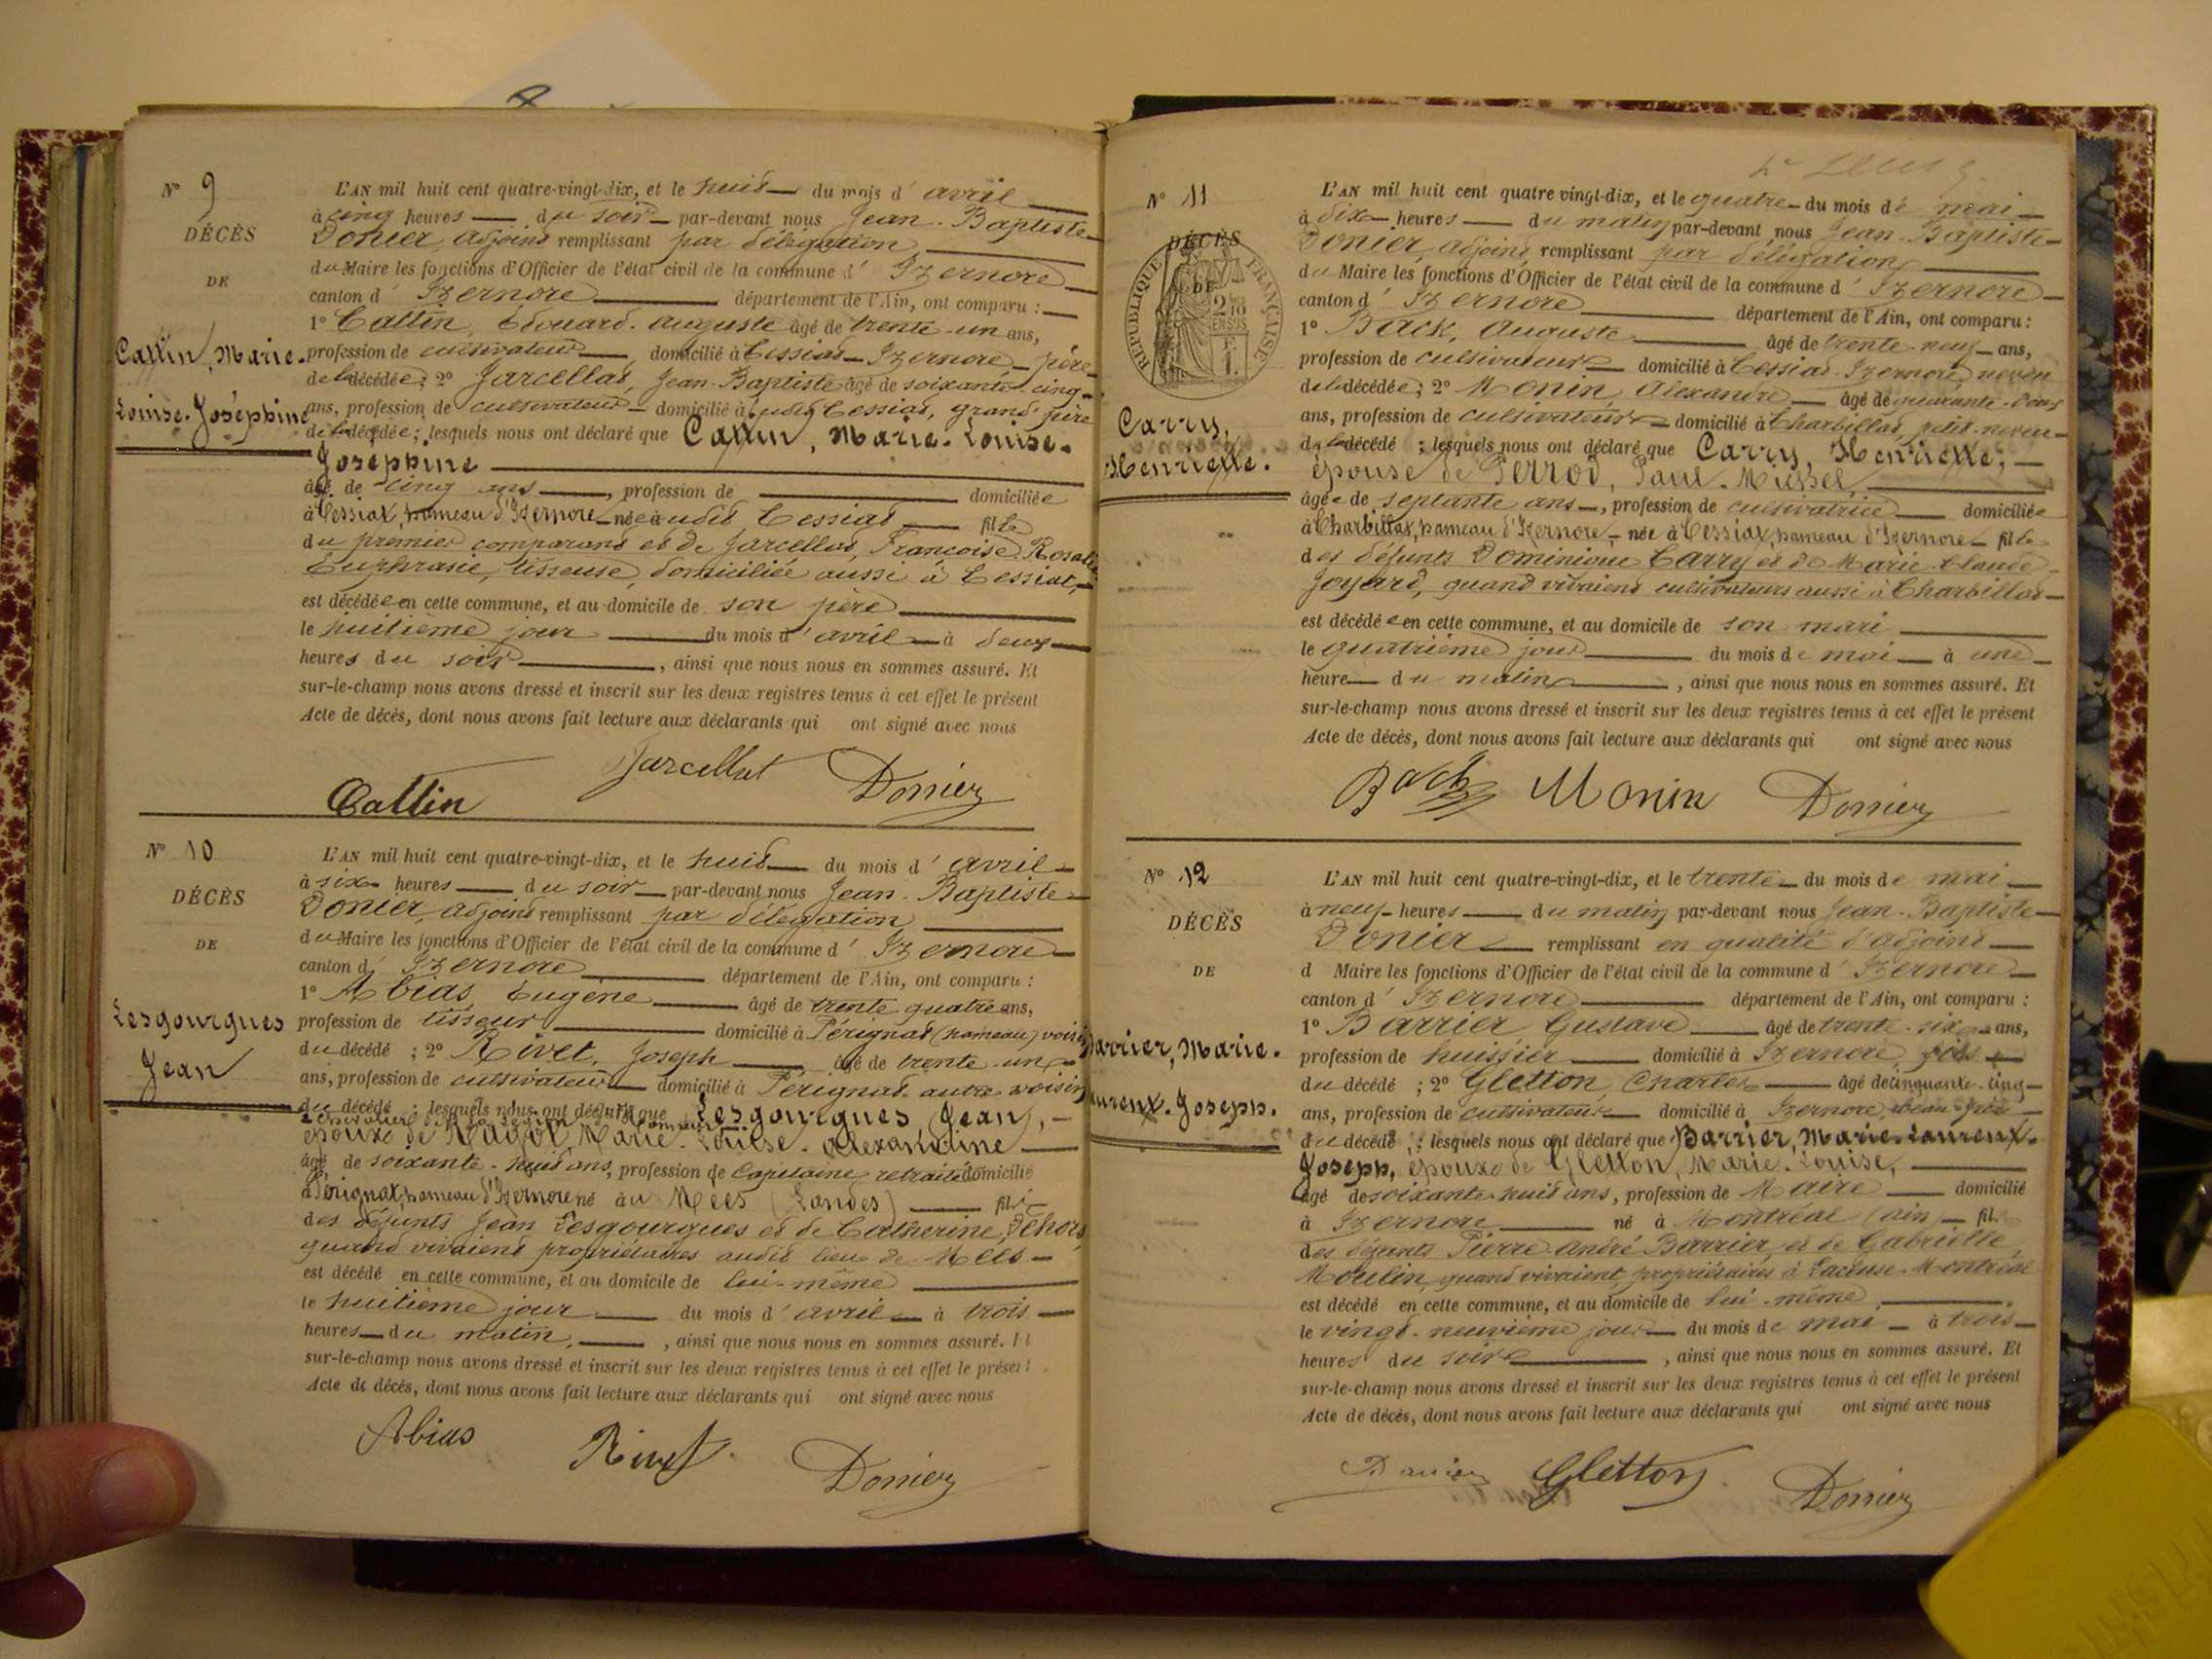 N° 9
DÉCÈS
DE
Cattin, Marie-
Louise-Joséphine
L'AN mil huit cent quatre-vingt-dix, et le huit du mois d'avril
à cinq heures du soir par-devant nous Jean-Baptiste
Donier, adjoint remplissant par délégation
du Maire les fonctions d'Officier de l'état civil de la commune d'Izernore
canton d'Izernore département de l'Ain, ont comparu :
1° Cattin, Edouard-Auguste âgé de trente-un ans,
profession de cultivateur domicilié à Cessiat-Izernore, père
de la décédée ; 2° Jarcellat, Jean-Baptiste âgé de soixante-cinq
ans, profession de cultivateur domicilié à udit Cessiat, grand père
de la décédée ; lesquels nous ont déclaré que Cattin, Marie-Louise-
Joséphine
âgé de cinq ans, profession de domiciliée
à Cessiat, hameau d'Izernore née à udit Cessiat fille
du premier comparant et de Jarcellat, Françoise Rosalie
Euphrasie, tisseuse, domiciliée aussi à Cessiat,
est décédée en cette commune, et au domicile de son père
le huitième jour du mois d'avril à deux
heures du soir, ainsi que nous nous en sommes assuré. Et
sur-le-champ nous avons dressé et inscrit sur les deux registres tenus à cet effet le présent
Acte de décès, dont nous avons fait lecture aux déclarants qui ont signé avec nous
Cattin Jarcellat Donier
N° 10
DÉCÈS
DE
Lesgourgues
Jean
L'AN mil huit cent quatre-vingt-dix, et le huit du mois d'avril
à six heures du soir par-devant nous Jean-Baptiste
Donier, adjoint remplissant par délégation
du Maire les fonctions d'Officier de l'état civil de la commune d'Izernore
canton d'Izernore département de l'Ain, ont comparu :
1° Abias, Eugène âgé de trente quatre ans,
profession de tisseur domicilié à Pérignat (hameau) voisin
du décédé ; 2° Rivet, Joseph âgé de trente-un
ans, profession de cultivateur domicilié à Pérignat autre voisin
du décédé ; lesquels nous ont déclaré que Lesgourgues Jean,
chevalier de la Légion d'honneur
époux de Marie-Louise-Alexandrine
âgé de soixante-huit ans, profession de Capitaine retraité domicilié
à Pérignat, hameau d'Izernore né à u Mées (Landes) fils
des défunts Jean Lesgourgues et de Catherine Dehors,
quand vivaient propriétaires audit lieu de Mées
est décédé en cette commune, et au domicile de lui-même
le huitième jour du mois d'avril à trois
heures du matin, ainsi que nous nous en sommes assuré. Et
sur-le-champ nous avons dressé et inscrit sur les deux registres tenus à cet effet le présent
Acte de décès, dont nous avons fait lecture aux déclarants qui ont signé avec nous
Abias Rivet Donier
N° 11
DÉCÈS
DE
RÉPUBLIQUE FRANÇAISE
2/10 EN SUS
Carry,
Henriette.
L'AN mil huit cent quatre vingt-dix, et le quatre du mois de mai
à dix heures du matin par-devant nous Jean-Baptiste
Donier, adjoint, remplissant par délégation
du Maire les fonctions d'Officier de l'état civil de la commune d'Izernore
canton d'Izernore département de l'Ain, ont comparu :
1° Back, Auguste âgé de trente-neuf ans,
profession de cultivateur domicilié à Cessiat-Izernore, neveu
de la décédée ; 2° Monin, Alexandre âgé de quarante-deux
ans, profession de cultivateur domicilié à Charbillat, petit-neveu
de la décédé ; lesquels nous ont déclaré que Carry, Henriette,
épouse de Perrod, Paul-Michel,
âgée de septante ans, profession de cultivatrice domiciliée
à Charbillat, hameau d'Izernore, née à Cessiat, hameau d'Izernore fille
des défunts Dominique Carry et de Marie-Claude
Joyard, quand vivaient cultivateurs aussi à Charbillat
est décédée en cette commune, et au domicile de son mari
le quatrième jour du mois de mai à une
heure du matin, ainsi que nous nous en sommes assuré. Et
sur-le-champ nous avons dressé et inscrit sur les deux registres tenus à cet effet le présent
Acte de décès, dont nous avons fait lecture aux déclarants qui ont signé avec nous
Back Monin Donier
N° 12
DÉCÈS
DE
Barrier, Marie-
Laurent-Joseph.
L'AN mil huit cent quatre-vingt-dix, et le trente du mois de mai
à neuf heures du matin par-devant nous Jean-Baptiste
Donier remplissant en qualité d'adjoint
d Maire les fonctions d'Officier de l'état civil de la commune d'Izernore
canton d'Izernore département de l'Ain, ont comparu :
1° Barrier, Gustave âgé de trente-six ans,
profession de huissier domicilié à Izernore fils
du décédé ; 2° Gletton, Charles âgé de cinquante-cinq
ans, profession de cultivateur domicilié à Izernore, beau-père
du décédé ; lesquels nous ont déclaré que Barrier, Marie-Laurent-
Joseph, époux de Gletton, Marie-Louise,
âgé de soixante-huit ans, profession de Maire domicilié
à Izernore né à Montréal (Ain) fils
des défunts Pierre-André Barrier et de Gabrielle
Moulin, quand vivaient propriétaires à Lacluse-Montréal
est décédé en cette commune, et au domicile de lui-même
le vingt-neuvième jour du mois de mai à trois
heures du soir, ainsi que nous nous en sommes assuré. Et
sur-le-champ nous avons dressé et inscrit sur les deux registres tenus à cet effet le présent
Acte de décès, dont nous avons fait lecture aux déclarants qui ont signé avec nous
Barrier Gletton Donier